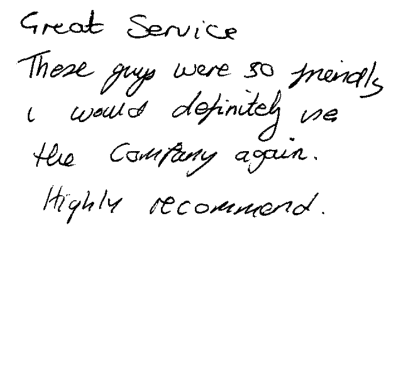 Great Service
These guys were so friendly
i would definitely use
the Company again.
Highly recommend.